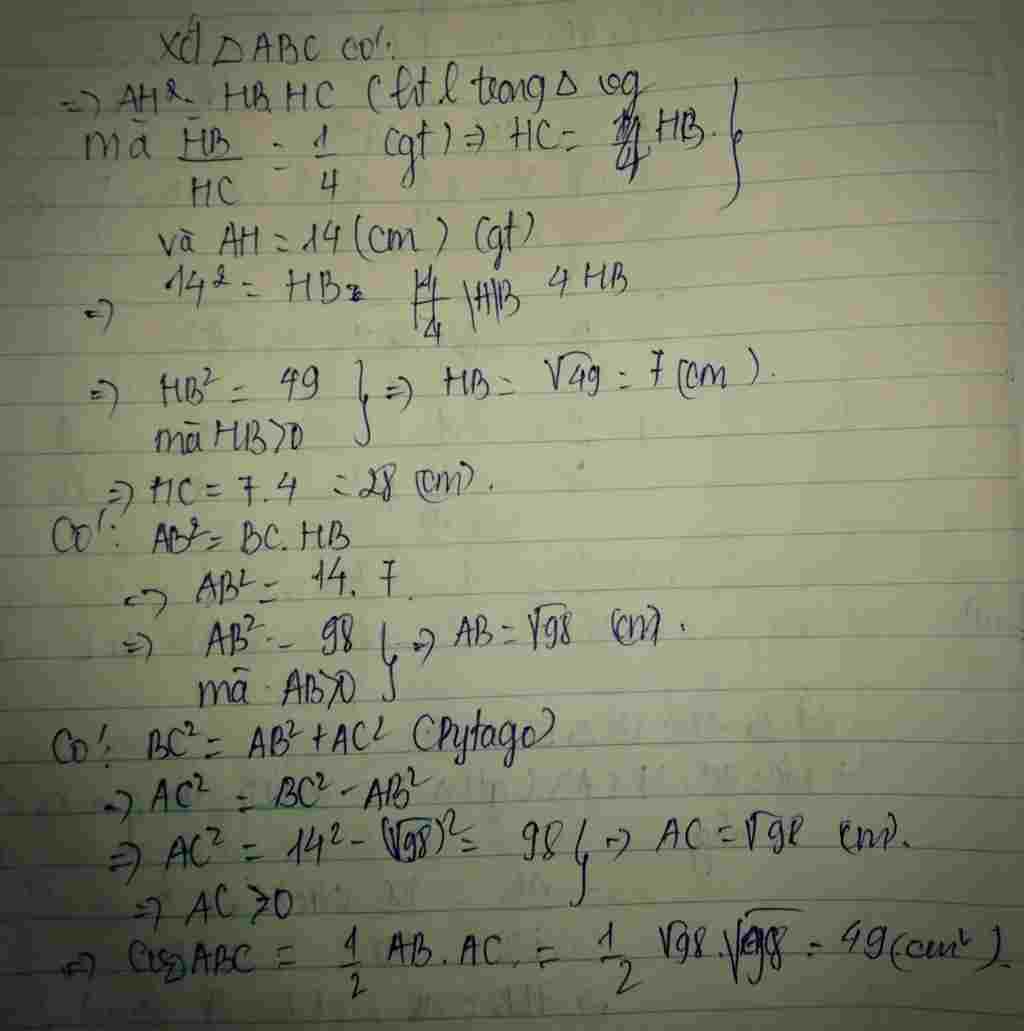 Xét △ABC có:
=> AH² = HB.HC (htl trong △ vg
mà HB/HC = 1/4 (gt) => HC = 4 HB.
và AH = 14 (cm) (gt)
=> 14² = HB. 4 HB
=> HB² = 49 } => HB = √49 = 7 (cm).
mà HB>0
=> HC = 7.4 = 28 (cm).
Có: AB² = BC.HB
=> AB² = 14.7
=> AB² = 98 } => AB = √98 (cm).
mà AB>0
Có: BC² = AB² + AC² (Pytago)
=> AC² = BC² - AB²
=> AC² = 14² - (√98)² = 98 } => AC = √98 (cm).
=> AC>0
=> ABC = 1/2 AB.AC = 1/2 √98.√98 = 49 (cm²).